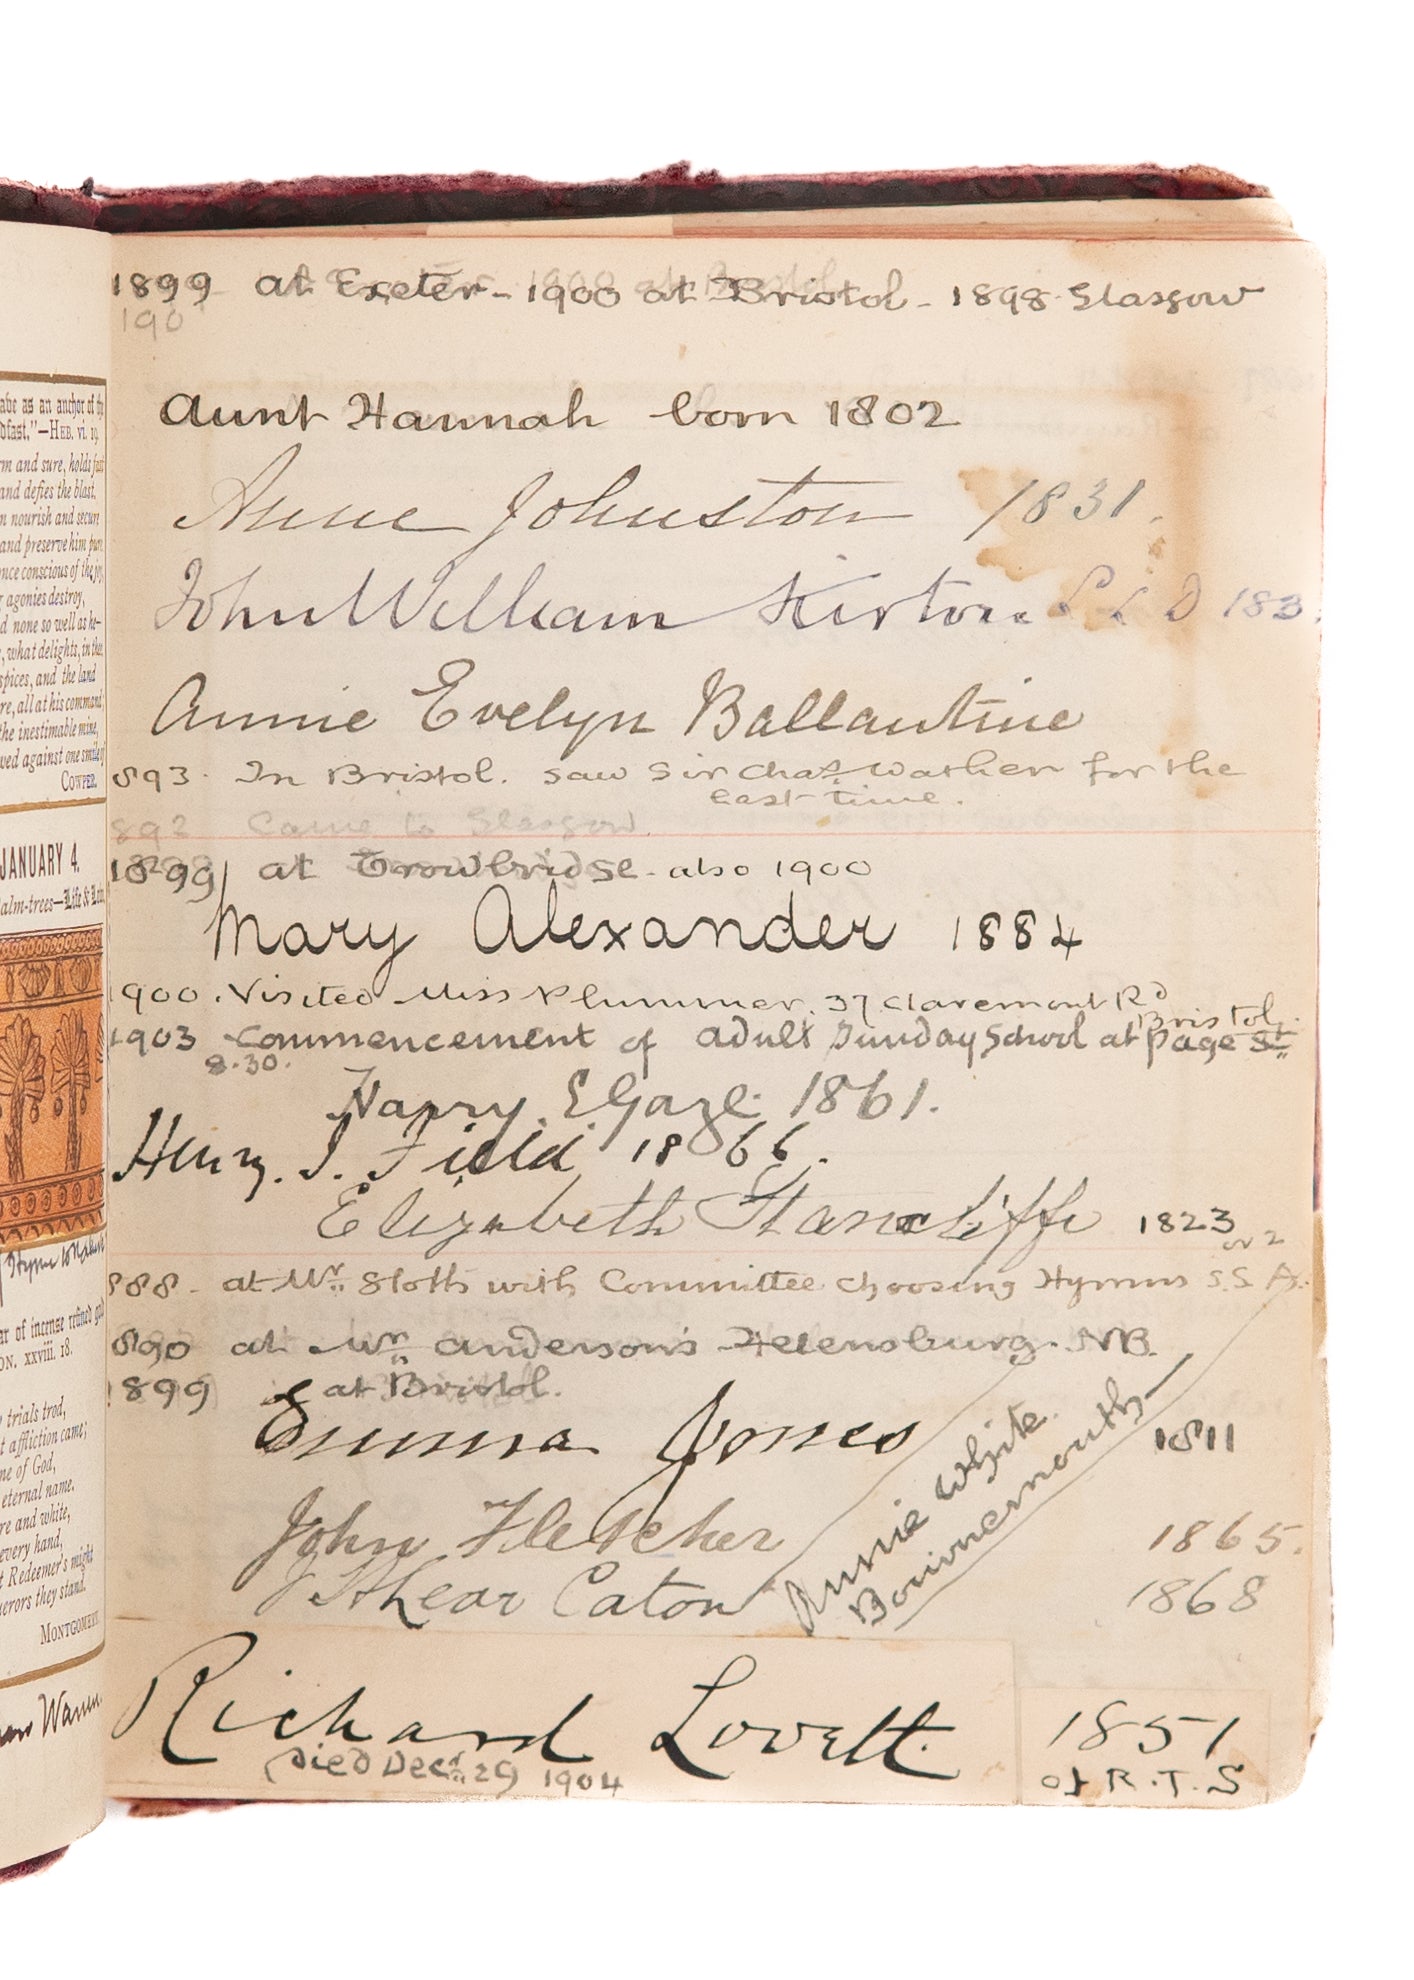 ave as an anchor of th
dfast."—HEB. vi. 19.
rm and sure, holds fast
and defies the blast,
n nourish and secure
and preserve him pure.
nce conscious of the joy,
r agonies destroy,
d none so well as he—
, what delights, in thee
spices, and the land
re, all at his command;
the inestimable mine,
ved against one smile of
COWPER.
JANUARY 4.
alm-trees—Life &
ar of incense refined gold
ON. xxviii. 18.
trials trod,
t affliction came;
ne of God,
eternal name.
re and white,
every hand,
t Redeemer's might
uerors they stand.
MONTGOMERY.
1899 at Exeter - 1900 at Bristol - 1898 Glasgow
190
Aunt Hannah born 1802
Anne Johnston 1831.
John William Kirton LLD 183
Annie Evelyn Ballantine
893. In Bristol. saw Sir Chas. Wathen for the
last time.
892 Came to Glasgow
1899 at Trowbridge - also 1900
Mary Alexander 1884
1900. Visited Miss Plummer. 37 Claremont Rd
Bristol.
1903 Commencement of Adult Sunday School at Page St
8.30.
Harry. E Gaze. 1861.
Henry. J. Field 1866.
Elizabeth Stancliffe 1823
or 2
888 - at Mr. Sloths with Committee choosing Hymns S.S.A.
890 at Mr. Anderson's Helensburg. NB.
1899 at Bristol.
Emma Jones 1811
Annie White.
Bournemouth
John Fletcher 1865.
J Shear Caton 1868
Richard Lovett. 1851
Died Decr. 29 1904 of R.T.S